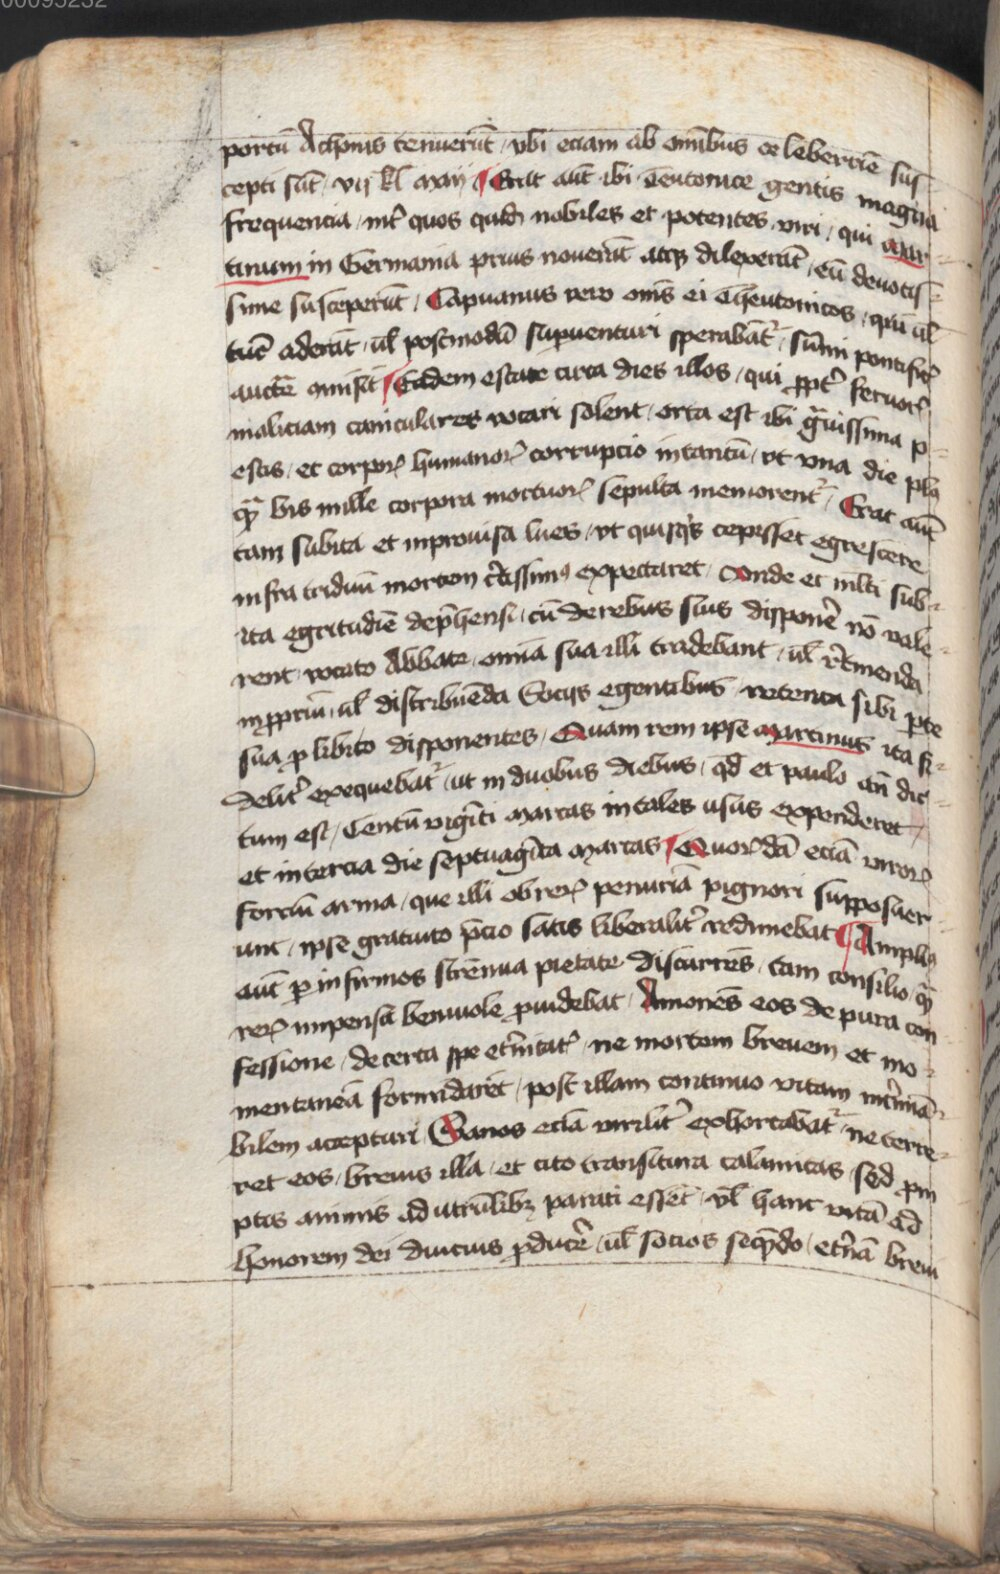 00095232
portū Achonis tenuerūt / vbi eciam ab om̄ibus celeberrīe sus-
cepti sūt / vij kl maij ¶ Erat aūt ibi Teutonice gentis magna
frequencia / int̉ quos quid̄ nobiles et potentes viri / qui mar-
tinum in Germania prius nouerūt atq₃ dilexerāt / eū deuotis-
sime susceperūt / Capuanus vero om̄s ei Theutonicos / qui ul̄
tūc aderāt / ul̄ postmodū supuenturi sperabāt̉ / sūmi pontificꝭ
auctē misit ¶ Eadem estate circa dies illos / qui ꝓpt̉ feruorꝭ
maliciam caniculares vocari solent / orta est ibi g̃uissima p-
estis / et corporꝝ humanorꝝ corrupcio intantū / vt vna die plꝯ
q̄ȝ bis mille corpora mortuorꝝ sepulta memorent̉ / Erat aūt
tam subita et inprouisa lues / vt quisq̉s cepisset egrescere
infra triduū mortem c̉tissimꝯ expectaret / Vnde et m̄lti sub-
ita egritudīe dep̄hensi / cū de rebus suis disponē nō vale-
rent / vocato Abbate / om̄ia sua illi tradebant / ul̄ r̉tinenda
inꝓpriū / ul̄ distribuēda Socijs egentibus / retenta sibi ꝑte
sua ꝓ libito disponentes / Quam rem ipse martinus ita fi-
delit̉ exequebat̉ / ut in duobus diebus / qd̄ et paulo an̄ dic-
tum est / Centū viginti marcas in tales usus expenderet /
et in tercia die septuagīta marcas ¶ Quorꝝdā eciā virorꝝ
forciū arma / que illi ob rerꝝ penuriā pignori supposuer-
unt / ipse gratuito p̄cio satis liberalit̉ redimebat ¶ Amplꝯ
aūt ꝑ infirmos strēnua pietate discurrēs / tam consilio q̄ȝ
rerꝝ impensa beniuole ꝓuidebat / Amonēs eos de pura con-
fessione / de certa spe et̉nitatꝭ / ne mortem breuem et mo-
mentaneā formidarēt / post illam continuo vitam int̉minā-
bilem accepturi / Sanos eciā virilit̉ exhortabat̉ / ne terre-
ret eos / breuis illa / et cito transitura calamitas / sed ꝓm-
ptis animis ad utrūlibȝ parati essēt / vl̄ hanc vitā ad
honorem dei diucius ꝓducē̉ / ul̄ socios seq̄ndo / et̉nā breui